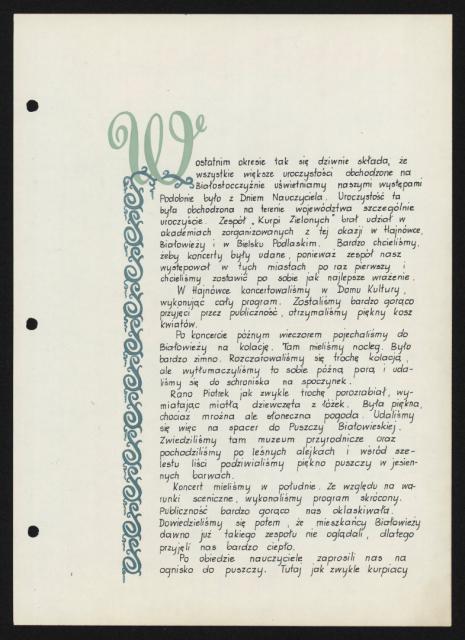 W ostatnim okresie tak się dziwnie składa, że
wszystkie większe uroczystości obchodzone na
Białostocczyźnie uświetniamy naszymi występami
Podobnie było z Dniem Nauczyciela. Uroczystość ta
była obchodzona na terenie województwa szczególnie
uroczyście. Zespół „Kurpi Zielonych" brał udział w
akademiach zorganizowanych z tej okazji w Hajnówce,
Białowieży i w Bielsku Podlaskim. Bardzo chcieliśmy,
żeby koncerty były udane, ponieważ zespół nasz
występował w tych miastach po raz pierwszy i
chcieliśmy zostawić po sobie jak najlepsze wrażenie.
W Hajnówce koncertowaliśmy w Domu Kultury,
wykonując cały program. Zostaliśmy bardzo gorąco
przyjęci przez publiczność, otrzymaliśmy piękny kosz
kwiatów.
Po koncercie późnym wieczorem pojechaliśmy do
Białowieży na kolację. Tam mieliśmy nocleg. Było
bardzo zimno. Rozczarowaliśmy się trochę kolacją,
ale wytłumaczyliśmy to sobie późną porą i uda-
liśmy się do schroniska na spoczynek.
Rano Piotrek jak zwykle trochę porozrabiał, wy-
miatając miotłą dziewczęta z łóżek. Była piękna,
chociaż mroźna ale słoneczna pogoda. Udaliśmy
się więc na spacer do Puszczy Białowieskiej.
Zwiedziliśmy tam muzeum przyrodnicze oraz
pochodziliśmy po leśnych alejkach i wśród sze-
lestu liści podziwialiśmy piękno puszczy w jesien-
nych barwach.
Koncert mieliśmy w południe. Ze względu na wa-
runki sceniczne, wykonaliśmy program skrócony.
Publiczność bardzo gorąco nas oklaskiwała.
Dowiedzieliśmy się potem, że mieszkańcy Białowieży
dawno już takiego zespołu nie oglądali, dlatego
przyjęli nas bardzo ciepło.
Po obiedzie nauczyciele zaprosili nas na
ognisko do puszczy. Tutaj jak zwykle kurpiacy